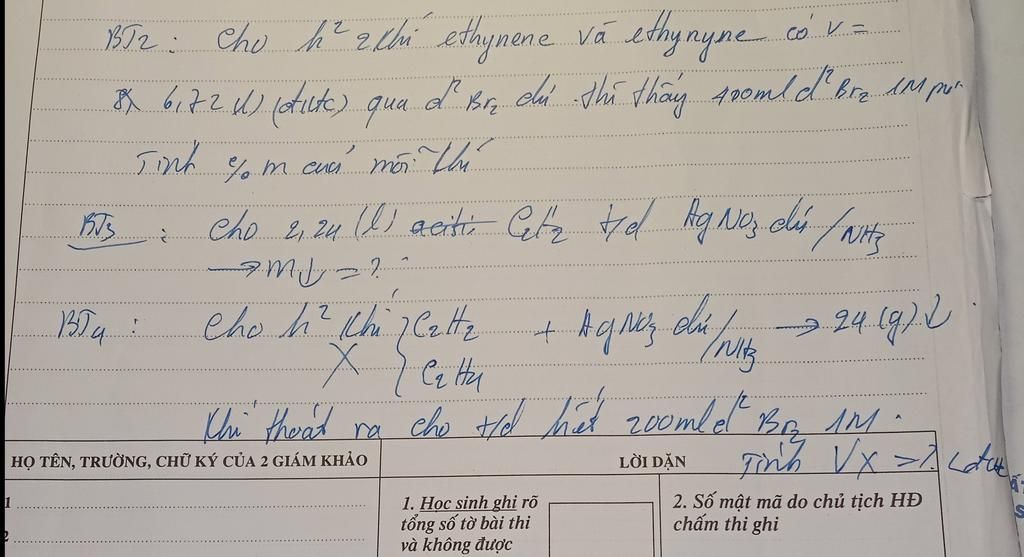 BT2 : Cho h² 2 khí ethynene và ethynyne có V =
6,72 (l) (đktc) qua d² Br2 dư thì thấy 400ml d² Br2 1M pư.
Tính % m của mỗi khí
BT3 : Cho 2,24 (l) C2H2 t/d AgNO3 dư / NH3
→ m↓ = ?
BT4 : Cho h² khí X { C2H2 C2H4 + AgNO3 dư / NH3 → 24 (g) ↓
Khí thoát ra cho t/d hết 200ml d² Br2 1M.
Tính VX = ? (đktc
HỌ TÊN, TRƯỜNG, CHỮ KÝ CỦA 2 GIÁM KHẢO
LỜI DẶN
1
2
1. Học sinh ghi rõ
tổng số tờ bài thi
và không được
2. Số mật mã do chủ tịch HĐ
chấm thi ghi